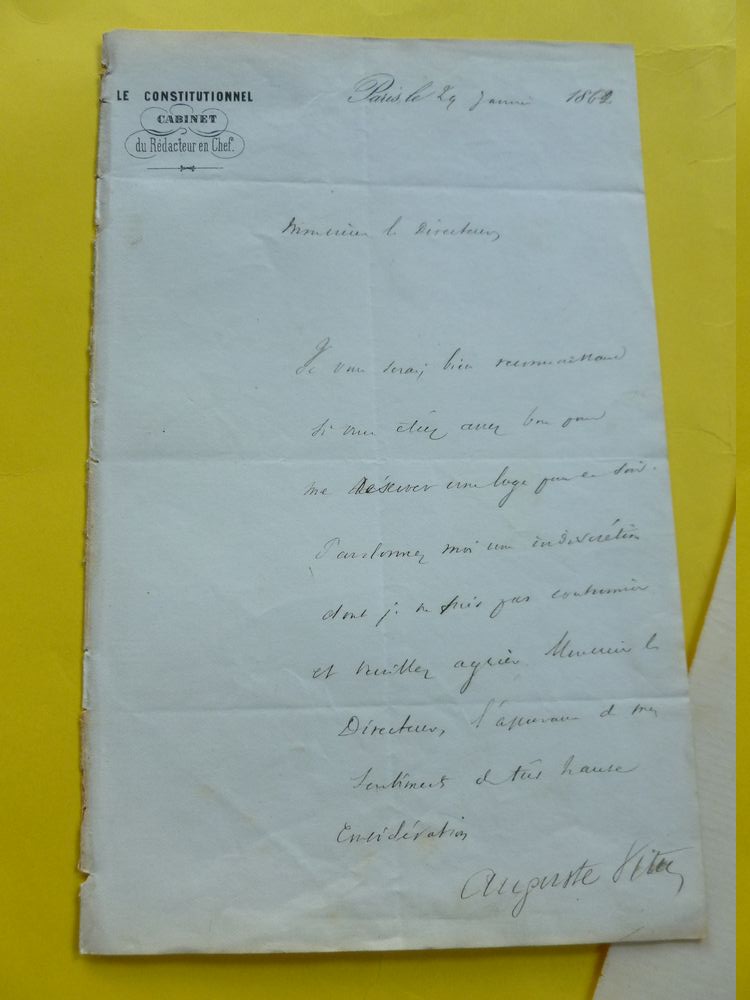 LE CONSTITUTIONNEL
CABINET
du Rédacteur en Chef.
Paris, le 29 Janvier 1869.
Monsieur le Directeur,
Je vous serais bien reconnaissant
si vous étiez assez bon pour
me réserver une loge pour ce soir.
Pardonnez moi une indiscrétion
dont je ne suis pas coutumier
et veuillez agréer Monsieur le
Directeur, l'assurance de mes
sentiments de très haute
Considération
Auguste Vitu